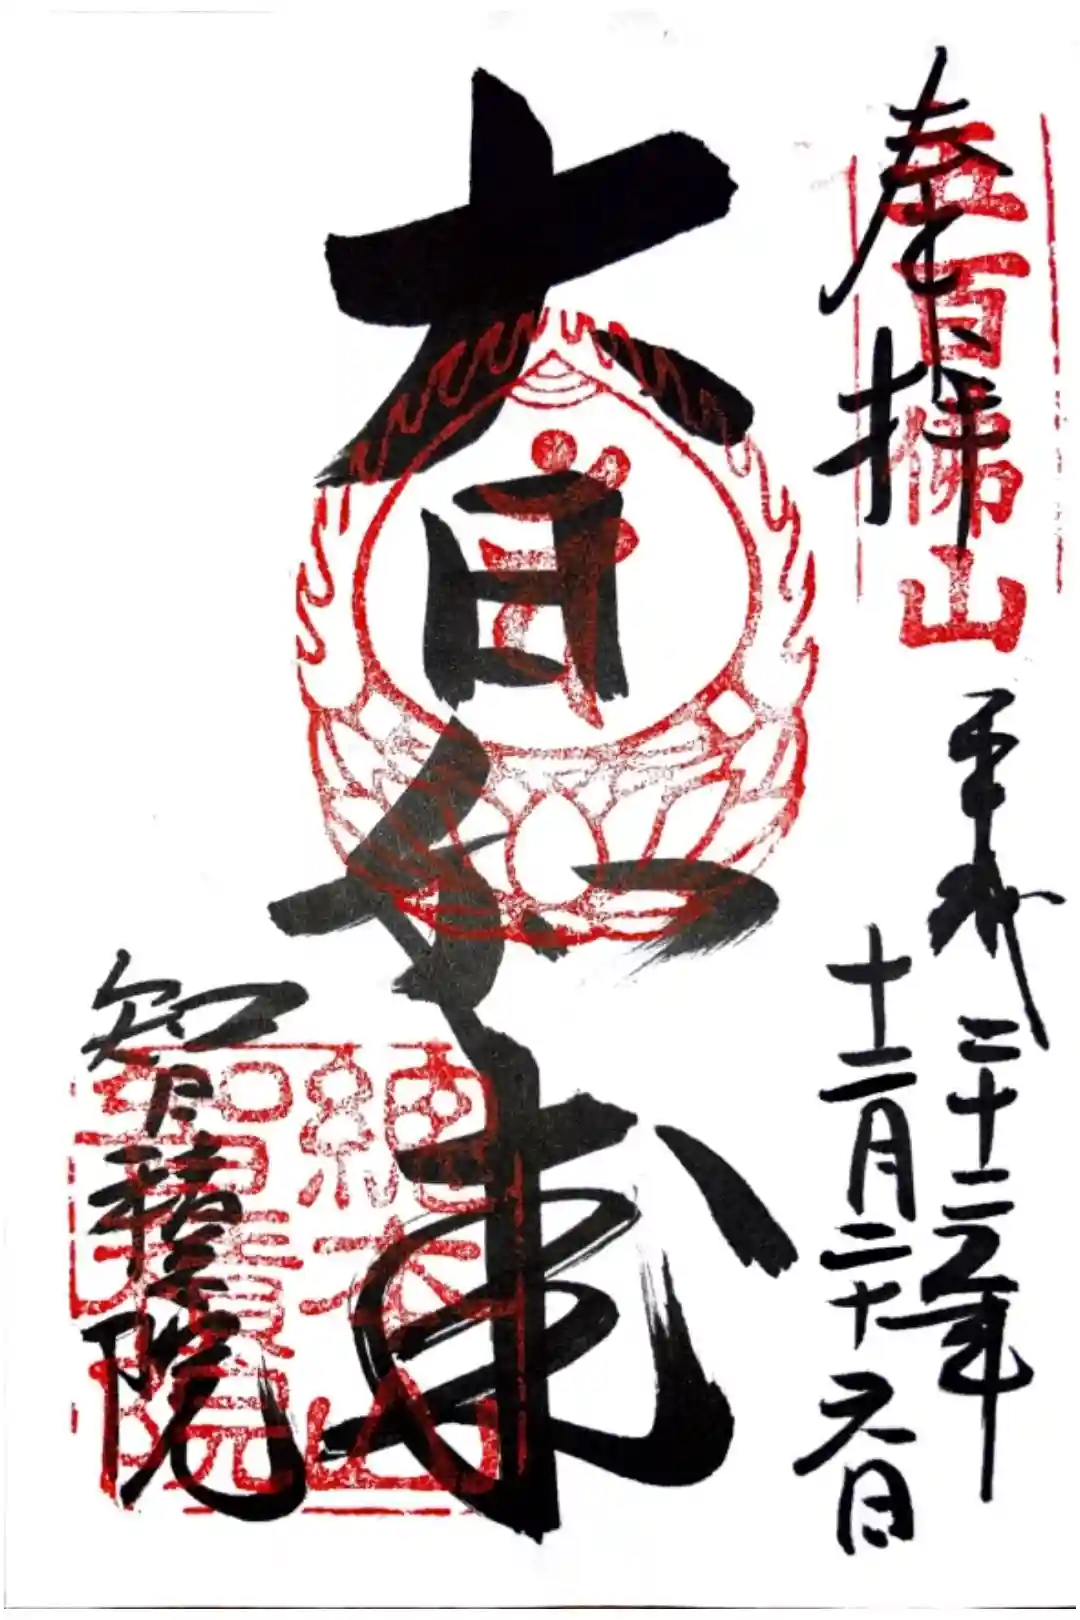 奉拝
五百佛山
平成二十年
十二月二十日
大日如来
總本山
智積院
智積院